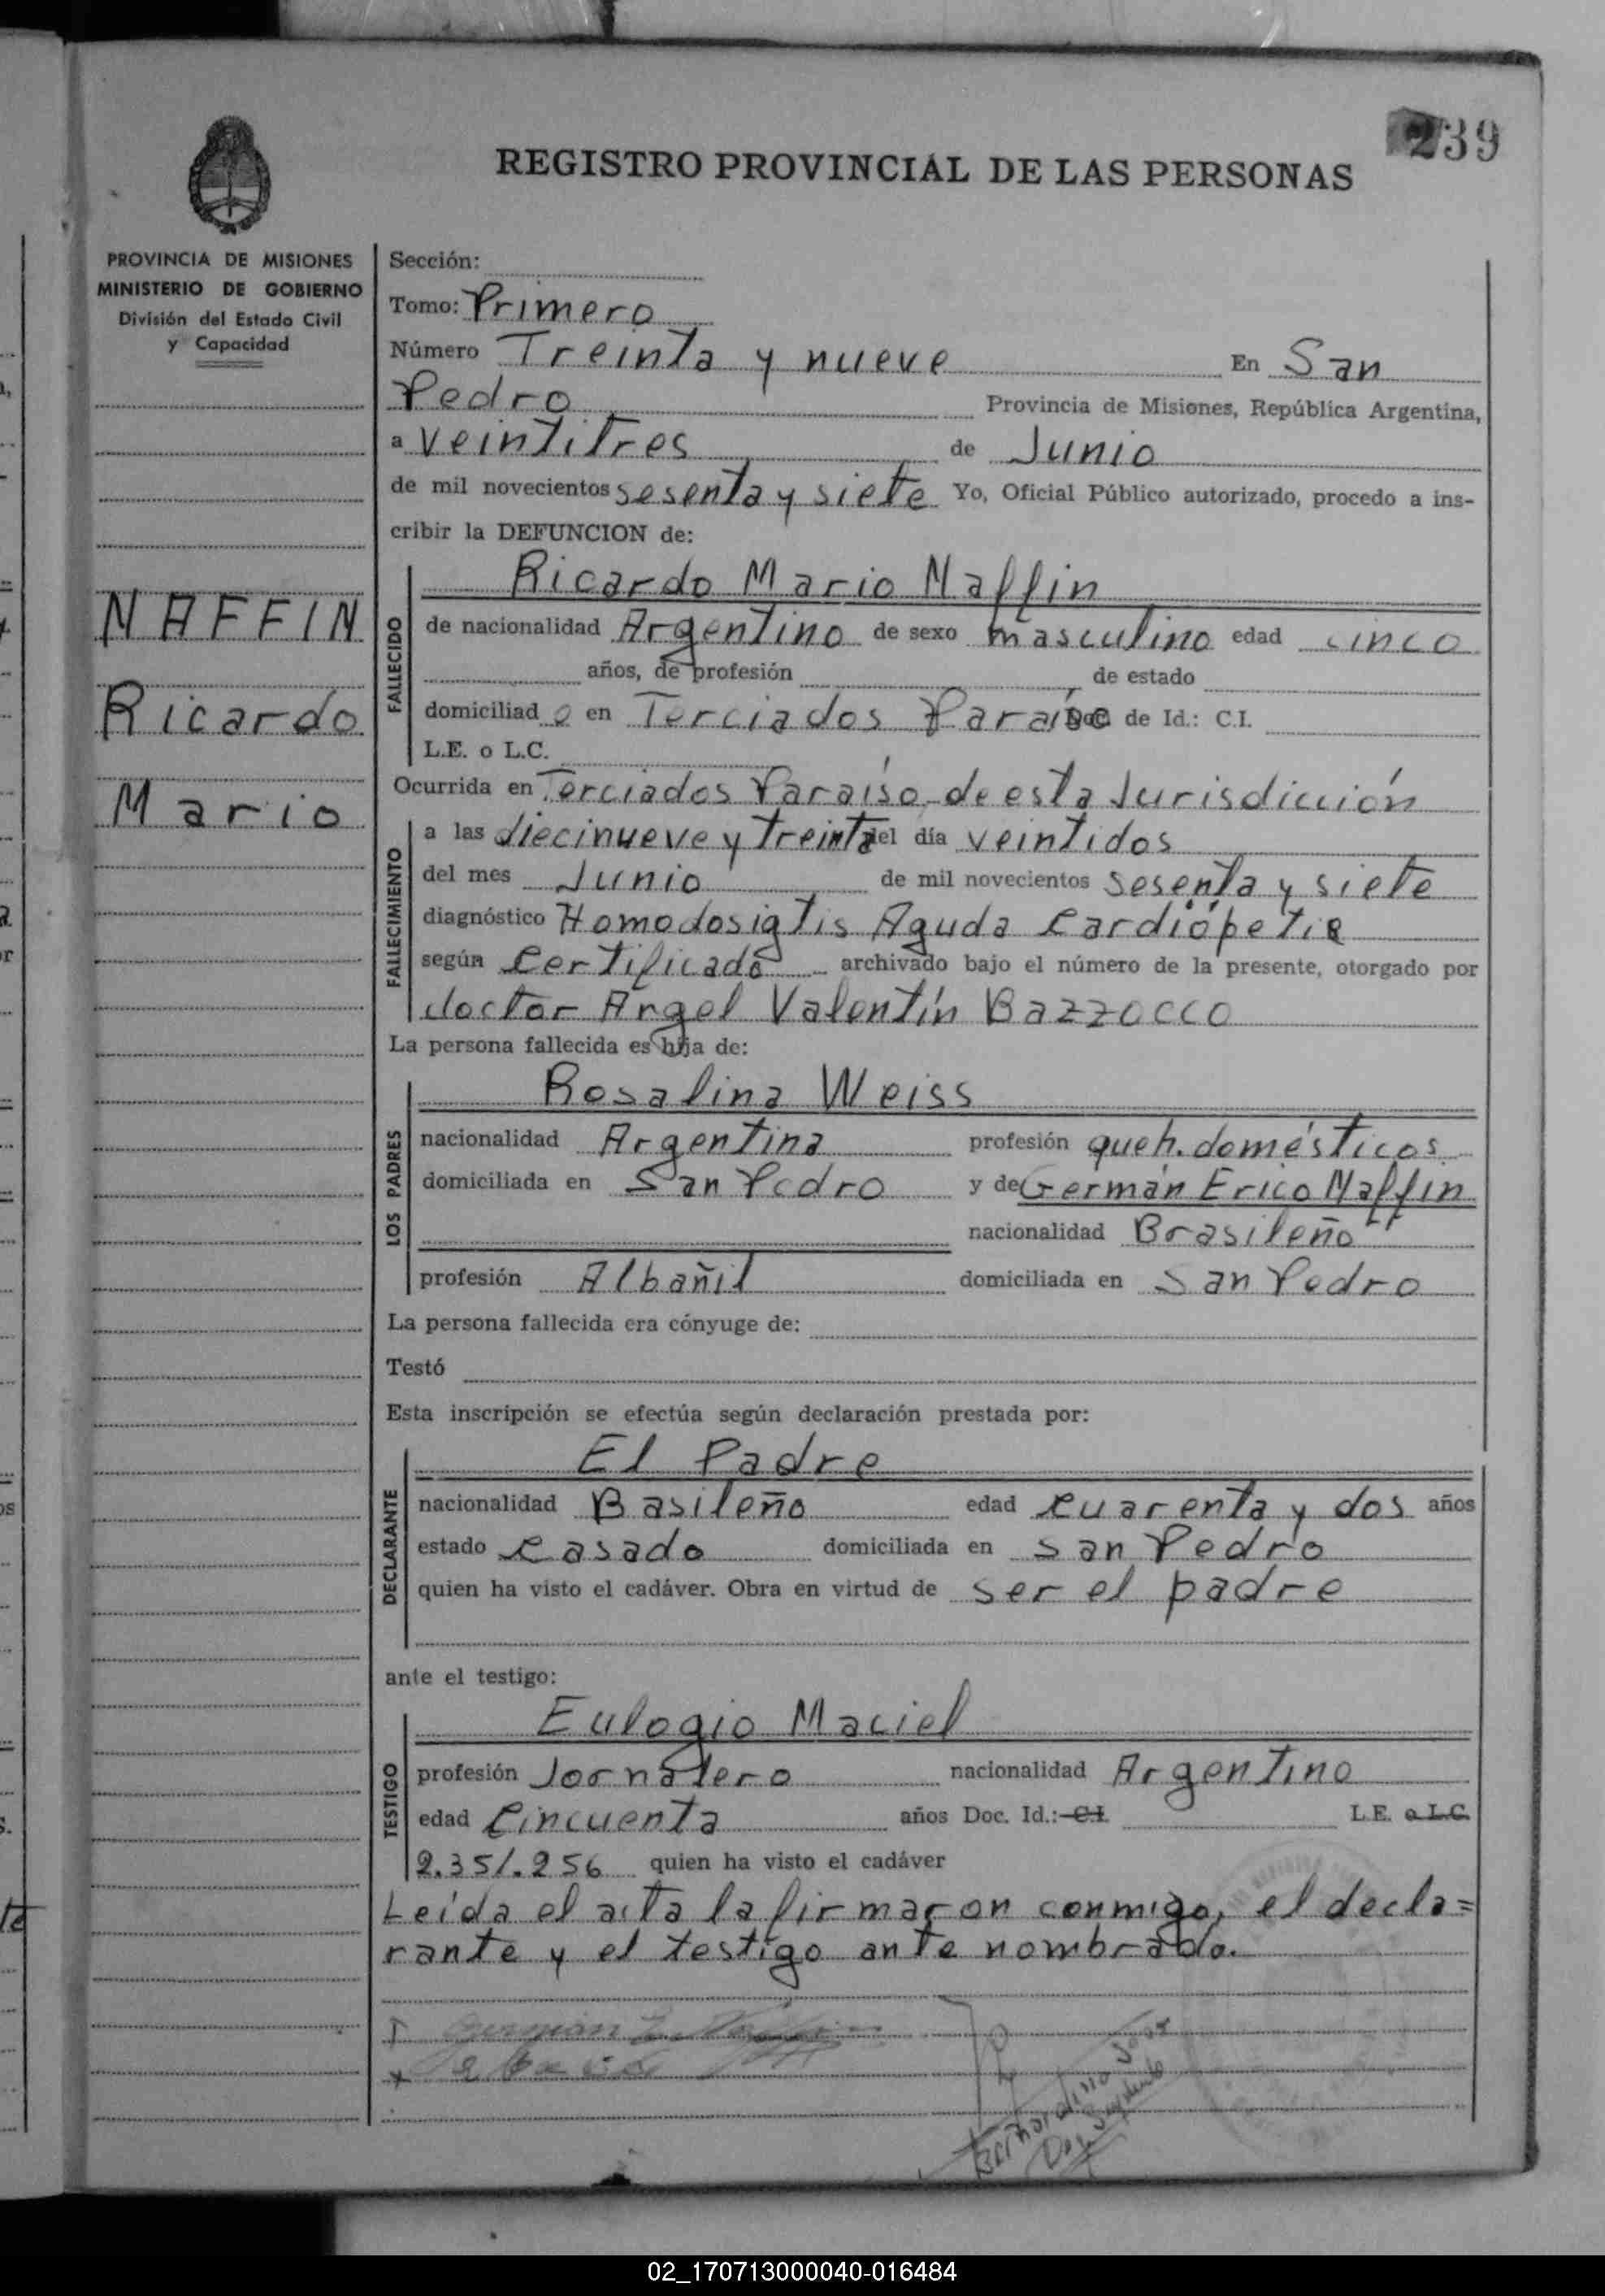 239
REGISTRO PROVINCIAL DE LAS PERSONAS
PROVINCIA DE MISIONES
MINISTERIO DE GOBIERNO
División del Estado Civil
y Capacidad
NAFFIN
Ricardo
Mario
Sección:
Tomo: Primero
Número Treinta y nueve En San
Pedro Provincia de Misiones, República Argentina,
a veintitres de Junio
de mil novecientos sesenta y siete Yo, Oficial Público autorizado, procedo a ins-
cribir la DEFUNCION de:
FALLECIDO
Ricardo Mario Naffin
de nacionalidad Argentino de sexo masculino edad cinco
años, de profesión de estado
domiciliado en Terciados Paraíso Doc. de Id.: C.I.
L.E. o L.C.
Ocurrida en Terciados Paraíso de esta Jurisdicción
FALLECIMIENTO
a las diecinueve y treinta del día veintidos
del mes Junio de mil novecientos sesenta y siete
diagnóstico Homodosigtis Aguda
según Certificado archivado bajo el número de la presente, otorgado por
doctor Angel Valentín Bazzocco
La persona fallecida es hija de:
LOS PADRES
Rosalina Weiss
nacionalidad Argentina profesión queh. domésticos
domiciliada en San Pedro y de Germán Erico Naffin
nacionalidad Brasileño
profesión Albañil domiciliada en San Pedro
La persona fallecida era cónyuge de:
Testó
Esta inscripción se efectúa según declaración prestada por:
DECLARANTE
El Padre
nacionalidad Basileño edad cuarenta y dos años
estado casado domiciliada en San Pedro
quien ha visto el cadáver. Obra en virtud de ser el padre
ante el testigo:
TESTIGO
Eulogio Maciel
profesión Jornalero nacionalidad Argentino
edad Cincuenta años Doc. Id.: C.I. L.E. o L.C.
2.351.256 quien ha visto el cadáver
Leída el acta la firmaron conmigo, el decla=
rante y el testigo ante nombrado.
02_170713000040-016484